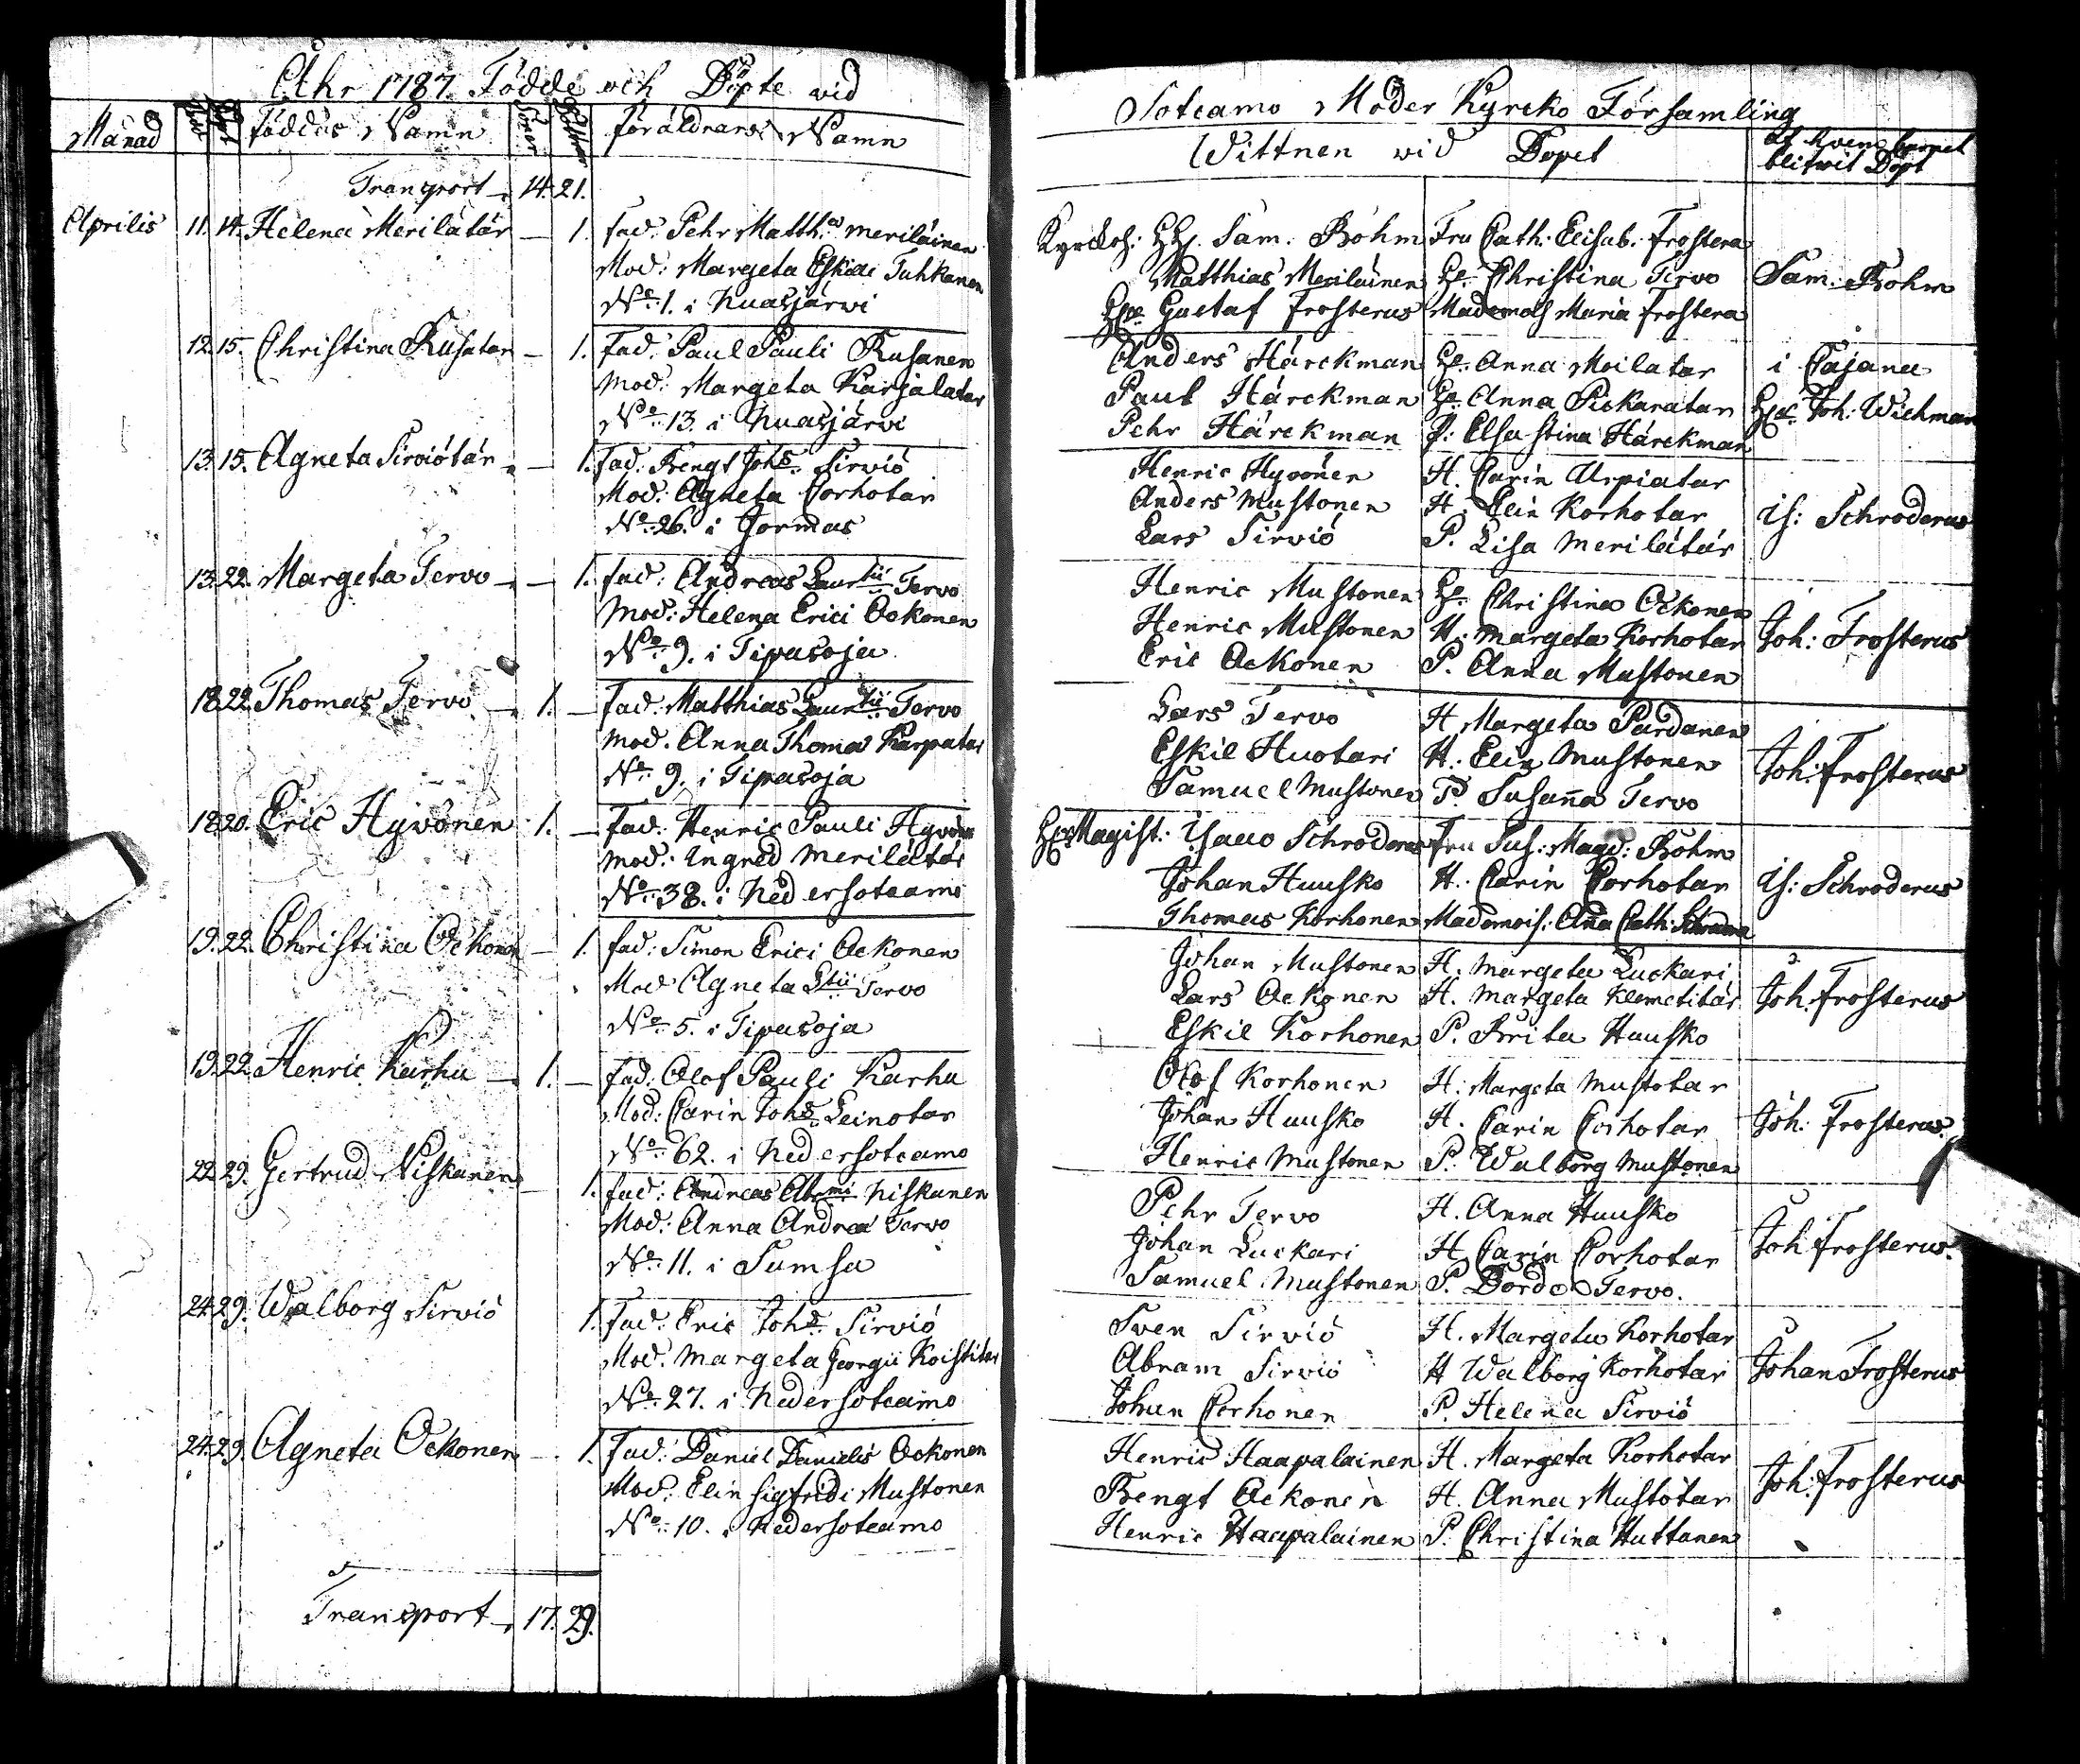 Åhr 1787. Födde och Döpte vid
Månad Föddas Namn Söner Döttrar Föräldrars Namn
Transport 14. 21.
Aprilis 11. 14. Helena Merilätär — 1. Fad: Pehr Matth:ae Meriläinen
Mod: Margeta Eskilli Tuhkanen
No 1. i Nuasjärvi
12. 15. Christina Rusatar — 1. Fad: Paul Pauli Rusanen
Mod: Margeta Karjalatar
No 13. i Nuasjärvi
13. 15. Agneta Sirviötär — 1. Fad: Bengt Johs Sirviö
Mod: Agneta Corhotar
No 26. i Jormas
13. 22. Margeta Tervo — 1. Fad: Andreas Laurtii Tervo
Mod: Helena Erici Ockonen
No 9. i Tipasoja
18. 22. Thomas Tervo — 1. — Fad: Matthias Laurtii Tervo
Mod. Anna Thomae Karpatar
No 9. i Tipasoja
18. 20. Eric Hyvönen 1. — Fad: Henric Pauli Hyvönen
Mod: Ingred Merilätär
No 38. i Nedersotcamo
19. 22. Christina Ockonen — 1. Fad: Simon Erici Ockonen
Mod Agneta Ltii Tervo
No 5. i Tipasoja
19. 22. Henric Karhu — 1. — Fad: Olof Pauli Karhu
Mod: Carin Johs Leinotar
No 62. i Nedersotcamo
22. 29. Gertrud Niskanen — 1. Fad: Andreas Abrmi Niskanen
Mod: Anna Andreae Tervo
No 11. i Sumsa
24. 29. Walborg Sirviö 1. Fad: Eric Johs Sirviö
Mod. Margeta Georgii Koistitar
No 27. i Nedersotcamo
24. 29. Agneta Ockonen — 1. Fad: Daniel Danielis Ockonen
Mod: Elin Sigfridi Mustonen
No 10. i Nedersotcamo
Transport 17. 29.
Sotcamo Moder Kyrcko Församling
Wittnen vid Dopet Af hvem barnet
blitwit Döpt
Kyrckoh: Sam: Böhm Fru Cath: Elisab: Frostera
Matthias Meriläinen Christina Tervo Sam: Böhm
Gustaf Frosterus Mademois Maria Frostera
Anders Härckman Anna Moilatar i Cajana
Paul Härckman Anna Pickaratar Joh: Wichman
Pehr Härckman P: Elsa Stina Härckman
Henric Hyvönen H. Carin Urpiatar
Anders Mustonen H. Elin Korhotar Is: Schroderus
Lars Sirviö P. Lisa Merilätär
Henric Mustonen Christina Ockonen
Henric Mustonen H: Margeta Korhotar Joh: Frosterus
Eric Ockonen P. Anna Mustonen
Lars Tervo H Margeta Pardanen
Eskil Huotari H. Elin Mustonen Joh: Frosterus
Samuel Mustonen P. Susanna Tervo
Magist: Isaac Schroderus Fru Sus: Magd: Böhm
Johan Huusko H. Carin Corhotar Is: Schroderus
Thomas Korhonen Mademois: Anna Cath:
Johan Mustonen H. Margeta Luckari
Lars Ockonen H. Margeta Klemetitär Joh. Frosterus
Eskil Korhonen P. Brita Huusko
Olof Korhonen H: Margeta Mustotar
Johan Huusko H. Carin Corhotar Joh: Frosterus
Henric Mustonen P. Walborg Mustonen
Pehr Tervo H. Anna Huusko
Johan Luckari H. Carin Corhotar Joh Frosterus.
Samuel Mustonen P. Bordo Tervo.
Sven Sirviö H. Margeta Korhotar
Abram Sirviö H Walborg Korhotar Johan Frosterus
Johan Corhonen P. Helena Sirviö
Henric Haapalainen H. Margeta Korhotar
Bengt Ockonen H. Anna Mustotar Joh: Frosterus
Henric Haapalainen P. Christina Huttanen